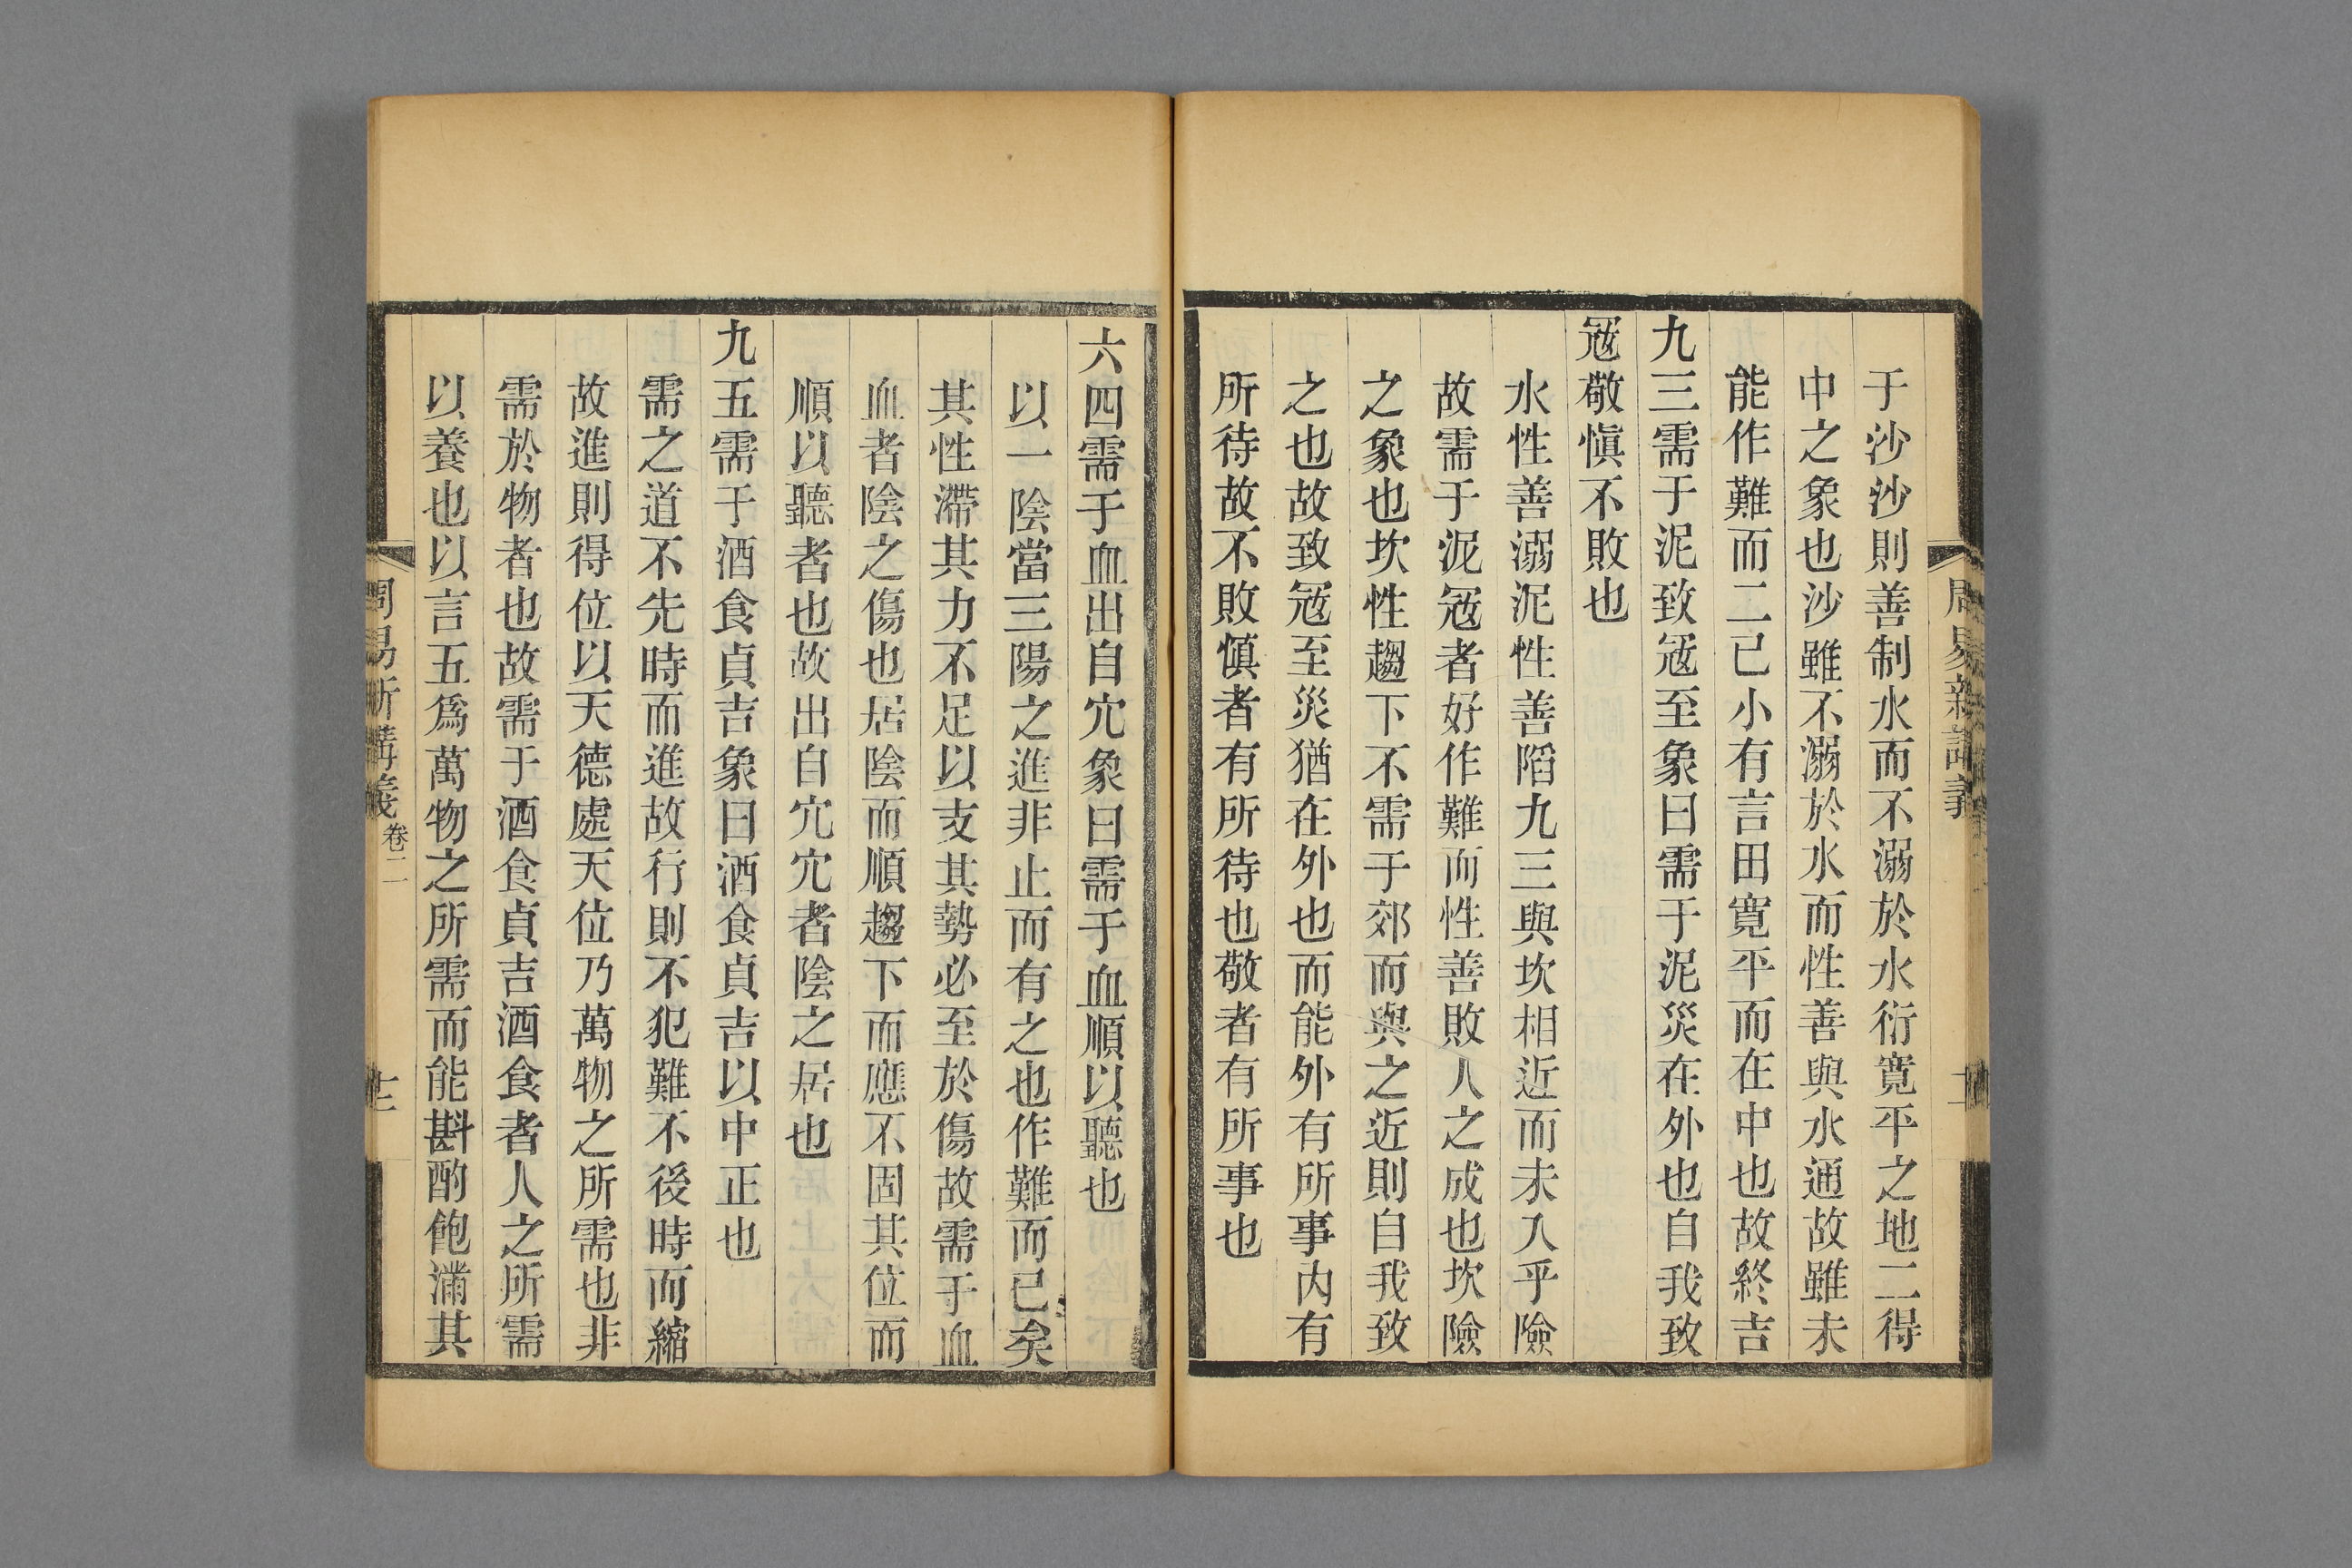 于沙沙則善制水而不溺於水衍寬平之地二得
中之象也沙雖不溺於水而性善與水通故雖未
能作難而二已小有言田寬平而在中也故終吉
九三需于泥致寇至象曰需于泥災在外也自我致
寇敬愼不敗也
水性善溺泥性善陷九三與坎相近而未入乎險
故需于泥寇者好作難而性善敗人之成也坎險
之象也坎性趨下不需于郊而與之近則自我致
之也故致寇至災猶在外也而能外有所事內有
所待故不敗愼者有所待也敬者有所事也
六四需于血出自穴象曰需于血順以聽也
以一陰當三陽之進非止而有之也作難而已矣
其性滯其力不足以支其勢必至於傷故需于血
血者陰之傷也居陰而順趨下而應不固其位而
順以聽者也故出自穴穴者陰之居也
九五需于酒食貞吉象曰酒食貞吉以中正也
需之道不先時而進故行則不犯難不後時而縮
故進則得位以天德處天位乃萬物之所需也非
需於物者也故需于酒食貞吉酒食者人之所需
以養也以言五爲萬物之所需而能斟酌飽滿其
周易新講義 卷二